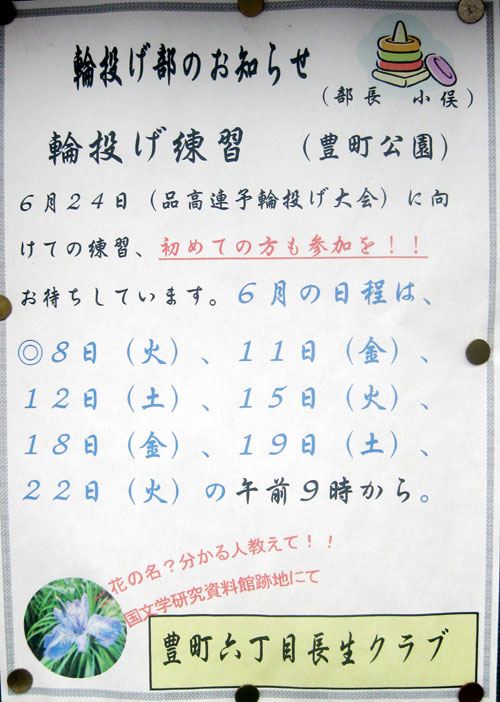 輪投げ部のお知らせ
（部長　小俣）
輪投げ練習　（豊町公園）
６月２４日（品高連予輪投げ大会）に向
けての練習、初めての方も参加を！！
お待ちしています。６月の日程は、
◎８日（火）、１１日（金）、
１２日（土）、１５日（火）、
１８日（金）、１９日（土）、
２２日（火）の午前９時から。
花の名？分かる人教えて！！
国文学研究資料館跡地にて
豊町六丁目長生クラブ